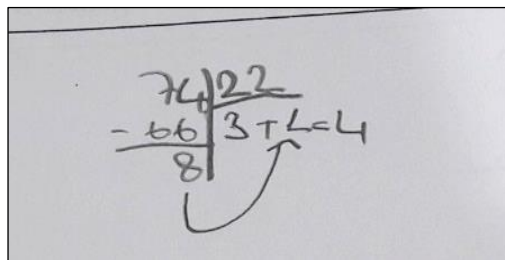 74 22
- 66 3 + 1 = 4
8